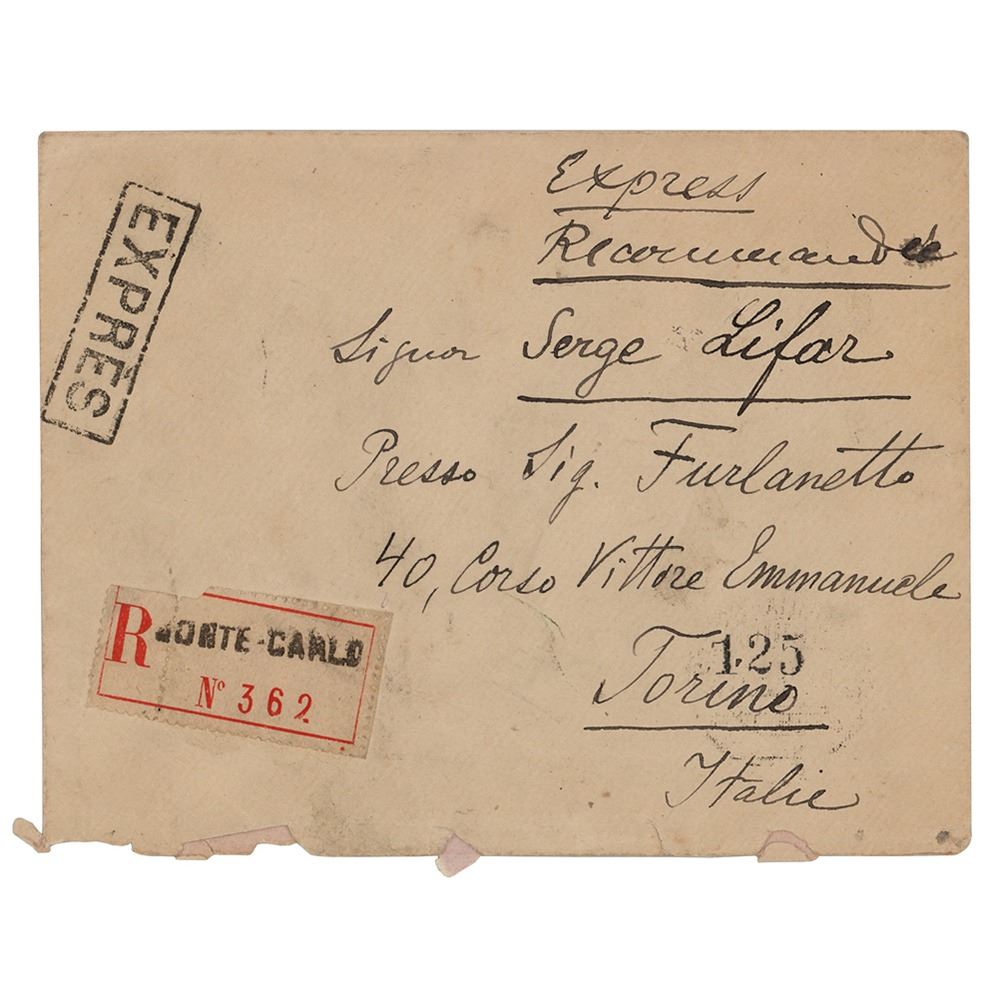 Express
Recommandée
EXPRÈS
Signor Serge Lifar
Presso Sig. Furlanetto
40, Corso Vittore Emmanuele
R MONTE-CARLO
Nº 362
1.25
Torino
Italie